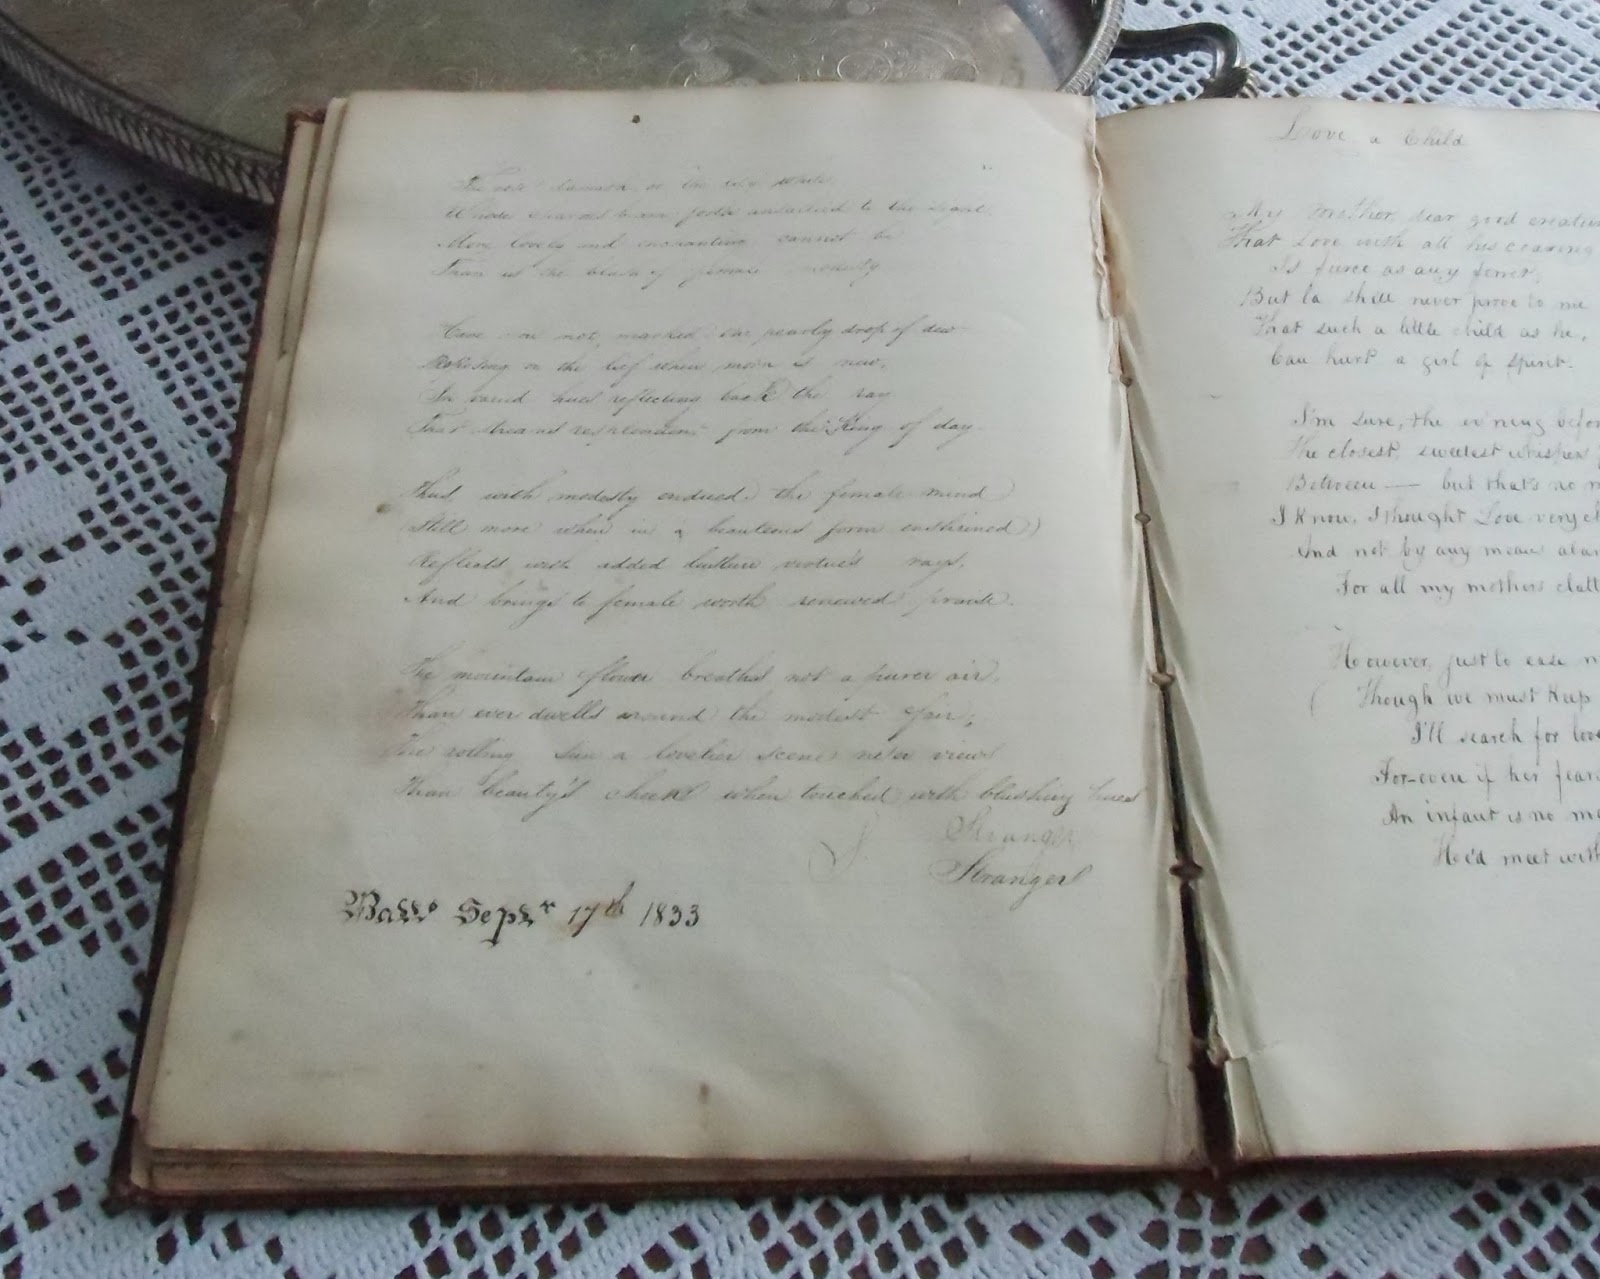 The rose damask or the lily white
Whose charms burn forth unsullied to the sight
More lovely and enchanting cannot be
Than is the blush of female modesty
Have you not marked the pearly drop of dew
Reposing on the leef when morn is new,
In varied hues reflecting back the ray
That streams resplendent from the King of day.
Thus with modesty endued, the female mind
(Still more when in a beauteous form enshrined)
Reflects with added lusture virtue's rays,
And brings to female worth renewed praise.
The mountain flower breathes not a purer air,
Than ever dwells around the modest fair,
The rolling Sun a lovelier scene ne'er views
Than beauty's cheek when touched with blushing hues
Stranger
Stranger
Balto Septr 17th 1833
Love a Child
My mother, dear good creature
That Love with all his coaxing
Is fierce as any ferret;
But la she'll never prove to me
That such a little child as he,
Can hurt a girl of spirit.
I'm sure, the ev'ning befor
The closest, sweetest whispers
Between — but that's no m
I know, I thought Love very cl
And not by any means alar
For all my mothers clatt
However, just to ease m
Though we must keep
I'll search for love
For even if her fears
An infant is no ma
He'd meet with